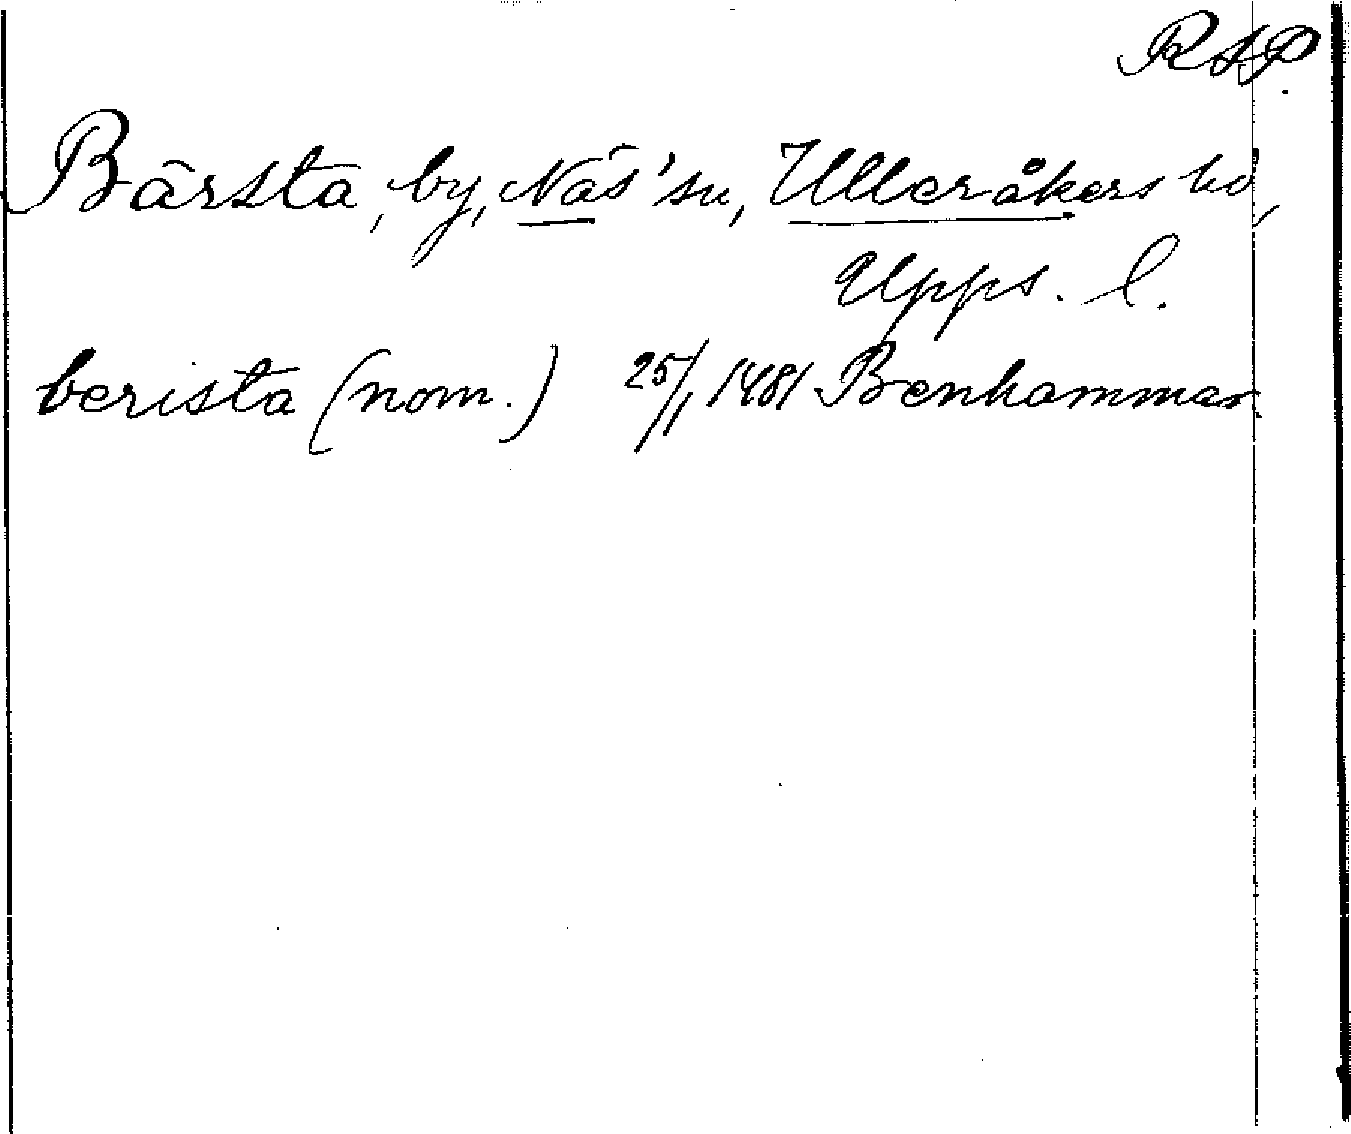 RAP.
Bärsta, by, Näs' sn, Ulleråkers hd,
Upps. l.
berista (nom.) 25/1 1481 Benhammar.